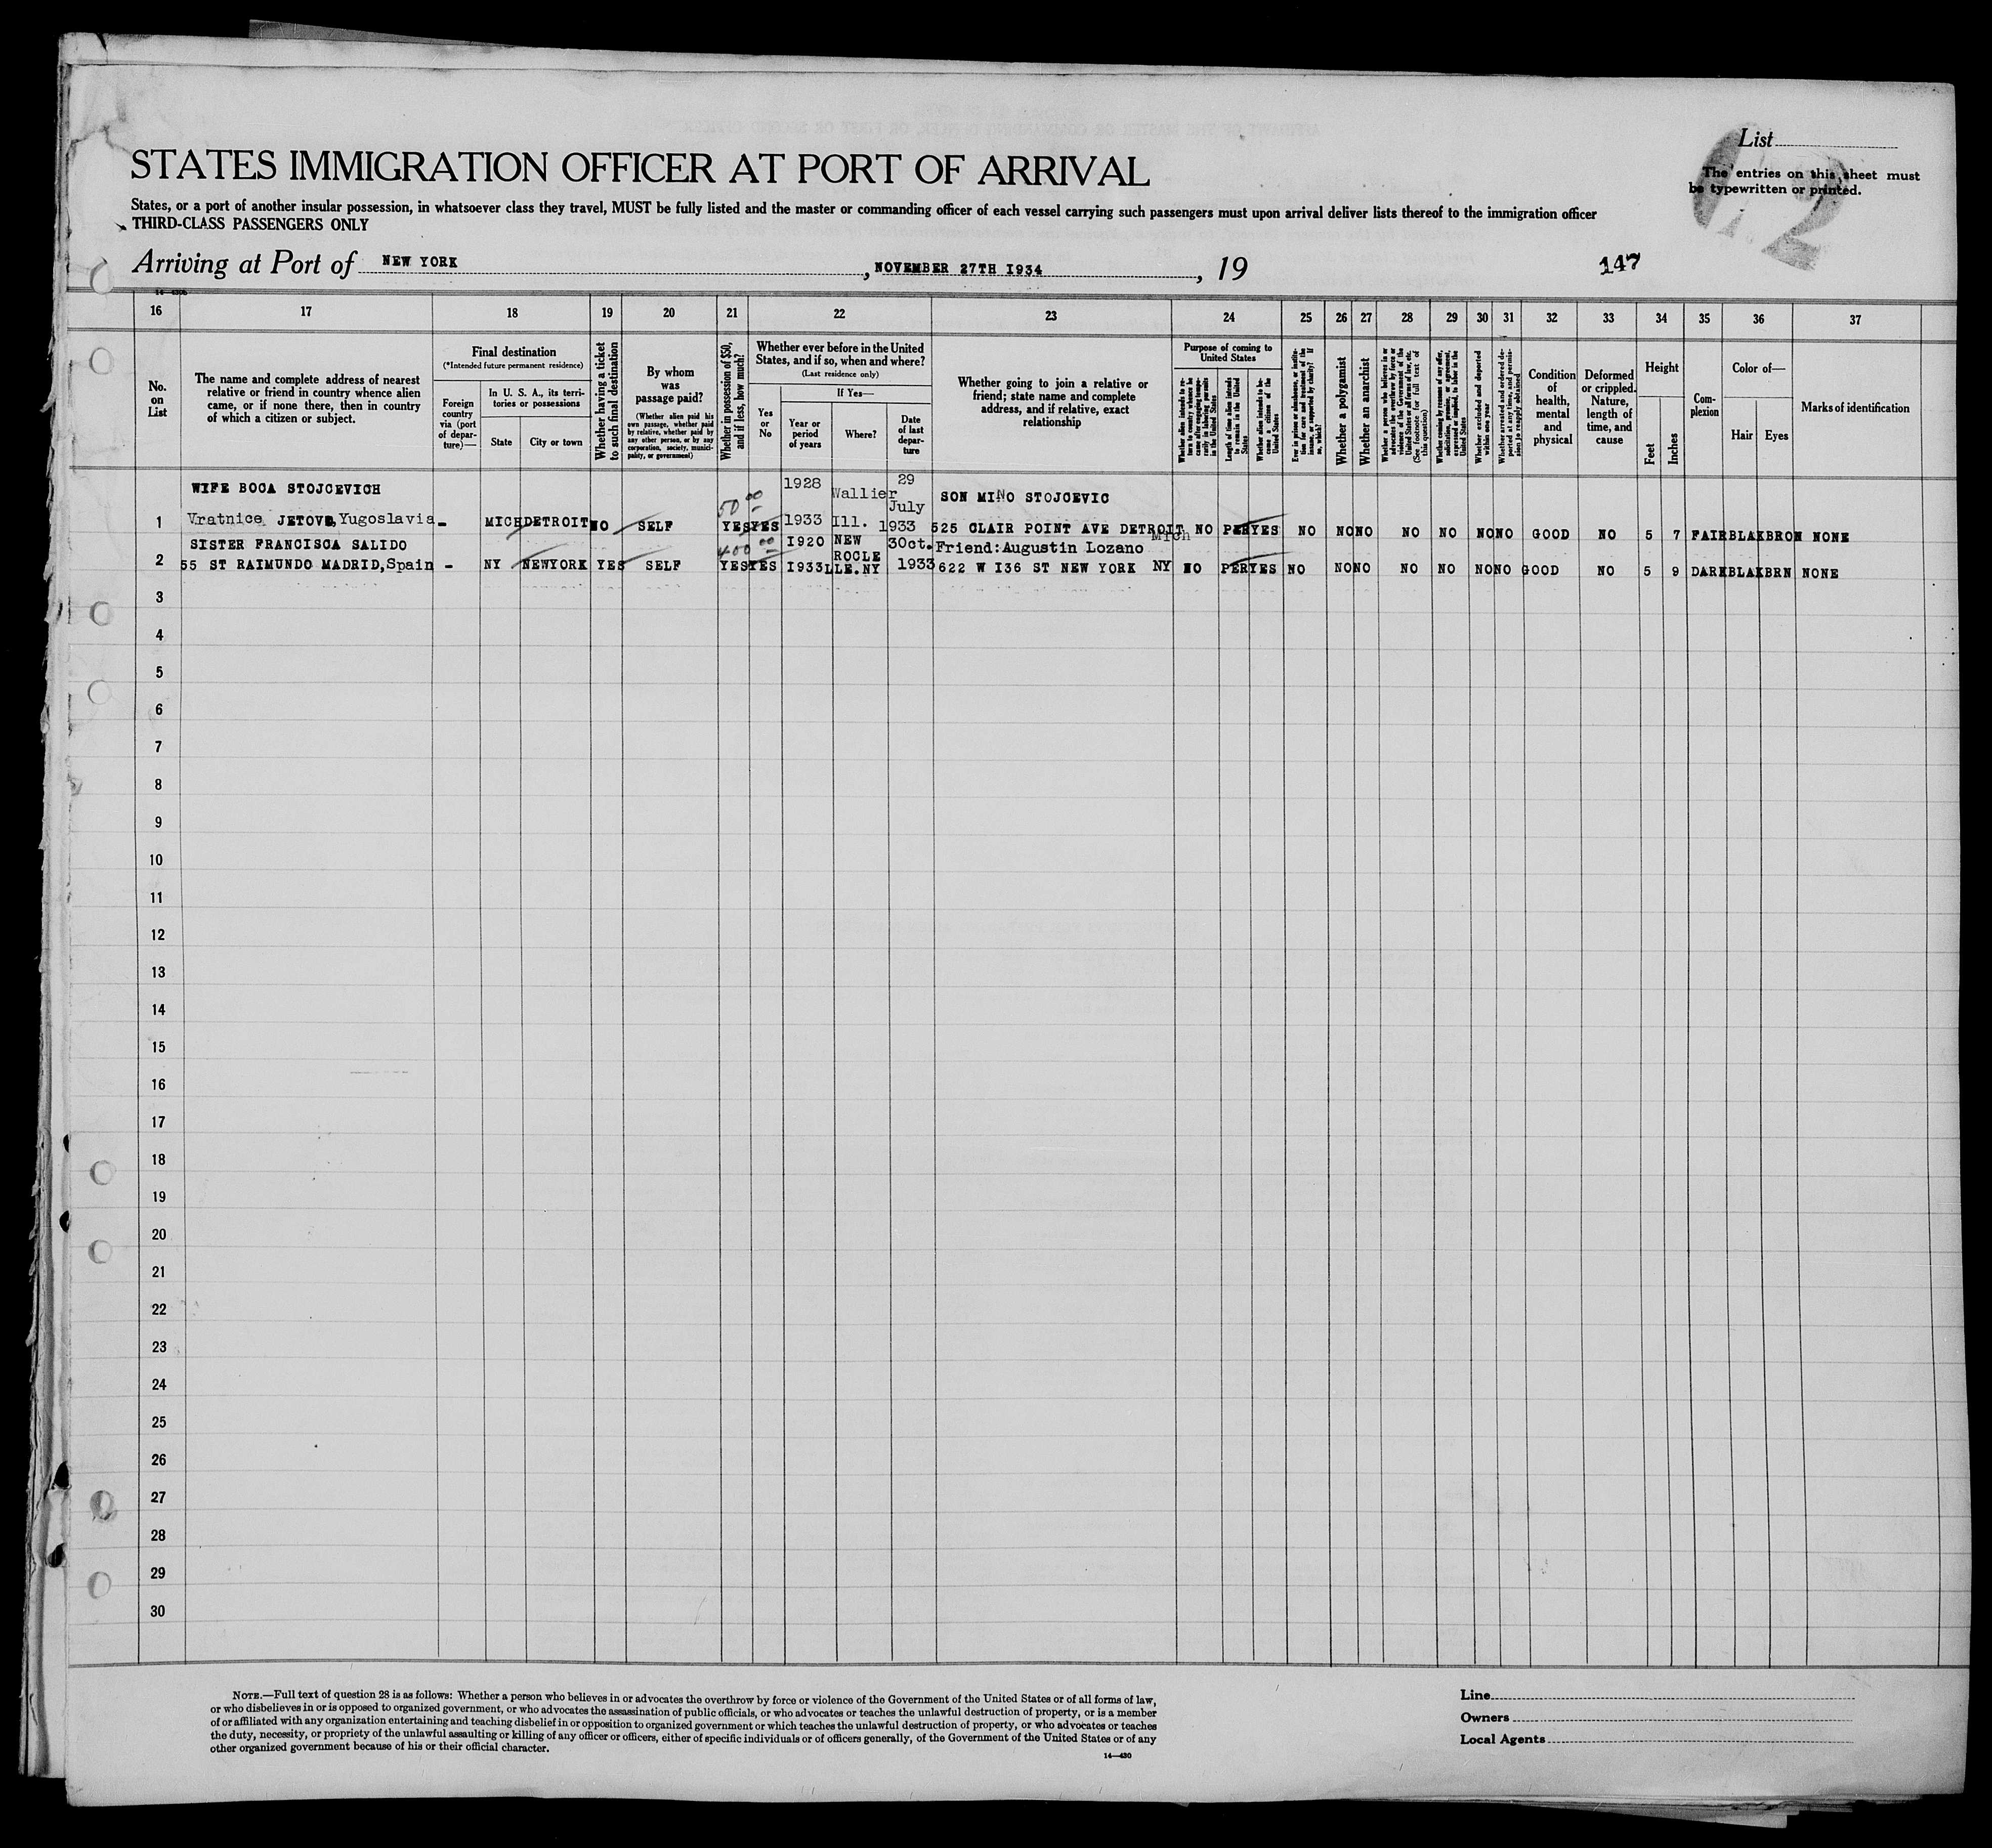 List
The entries on this sheet must
be typewritten or printed.
STATES IMMIGRATION OFFICER AT PORT OF ARRIVAL
States, or a port of another insular possession, in whatsoever class they travel, MUST be fully listed and the master or commanding officer of each vessel carrying such passengers must upon arrival deliver lists thereof to the immigration officer
THIRD-CLASS PASSENGERS ONLY
Arriving at Port of NEW YORK, NOVEMBER 27TH I934, 19
147
16 17 18 19 20 21 22 23 24 25 26 27 28 29 30 31 32 33 34 35 36 37
No. on List
The name and complete address of nearest
relative or friend in country whence alien
came, or if none there, then in country
of which a citizen or subject.
Final destination
(*Intended future permanent residence)
Foreign
country
via (port
of depar-
ture)—
In U. S. A., its terri-
tories or possessions
State
City or town
Whether having a ticket
to such final destination
By whom
was
passage paid?
(Whether alien paid his
own passage, whether paid
by relative, whether paid by
any other person, or by any
corporation, society, munici-
pality, or government)
Whether in possession of $50,
and if less, how much?
Whether ever before in the United
States, and if so, when and where?
(Last residence only)
Yes
or
No
If Yes—
Year or
period
of years
Where?
Date
of last
depar-
ture
Whether going to join a relative or
friend; state name and complete
address, and if relative, exact
relationship
Purpose of coming to
United States
Length of time alien intends
to remain in the United
States
Whether alien intends to be-
come a citizen of the
United States
Whether a polygamist
Whether an anarchist
Whether excluded and deported
within one year
Condition
of
health,
mental
and
physical
Deformed
or crippled.
Nature,
length of
time, and
cause
Height
Feet
Inches
Com-
plexion
Color of—
Hair
Eyes
Marks of identification
WIFE BOCA STOJCEVICH 50 00 1928 Wallier 29 July SON MINO STOJCEVIC
1 Vratnice JETOVE, Yugoslavia - MICH DETROIT NO SELF YES YES 1933 Ill. 1933 525 CLAIR POINT AVE DETROIT Mich NO PER YES NO NO NO NO NO NO NO GOOD NO 5 7 FAIR BLAK BRON NONE
SISTER FRANCISCA SALIDO 400 00 I920 NEW 3Oct. Friend:Augustin Lozano
2 55 ST RAIMUNDO MADRID,Spain - NY NEWYORK YES SELF YES YES I933 ROCLE LLE.NY 1933 622 W I36 ST NEW YORK NY NO PER YES NO NO NO NO NO NO NO GOOD NO 5 9 DARK BLAK BRN NONE
3
4
5
6
7
8
9
10
11
12
13
14
15
16
17
18
19
20
21
22
23
24
25
26
27
28
29
30
NOTE.—Full text of question 28 is as follows: Whether a person who believes in or advocates the overthrow by force or violence of the Government of the United States or of all forms of law,
or who disbelieves in or is opposed to organized government, or who advocates the assassination of public officials, or who advocates or teaches the unlawful destruction of property, or is a member
of or affiliated with any organization entertaining and teaching disbelief in or opposition to organized government or which teaches the unlawful destruction of property, or who advocates or teaches
the duty, necessity, or propriety of the unlawful assaulting or killing of any officer or officers, either of specific individuals or of officers generally, of the Government of the United States or of any
other organized government because of his or their official character.
14—430
Line
Owners
Local Agents